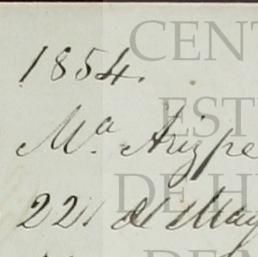 1854.
CENT
Mª Arizpe
EST
DE H
22 de May
DE N